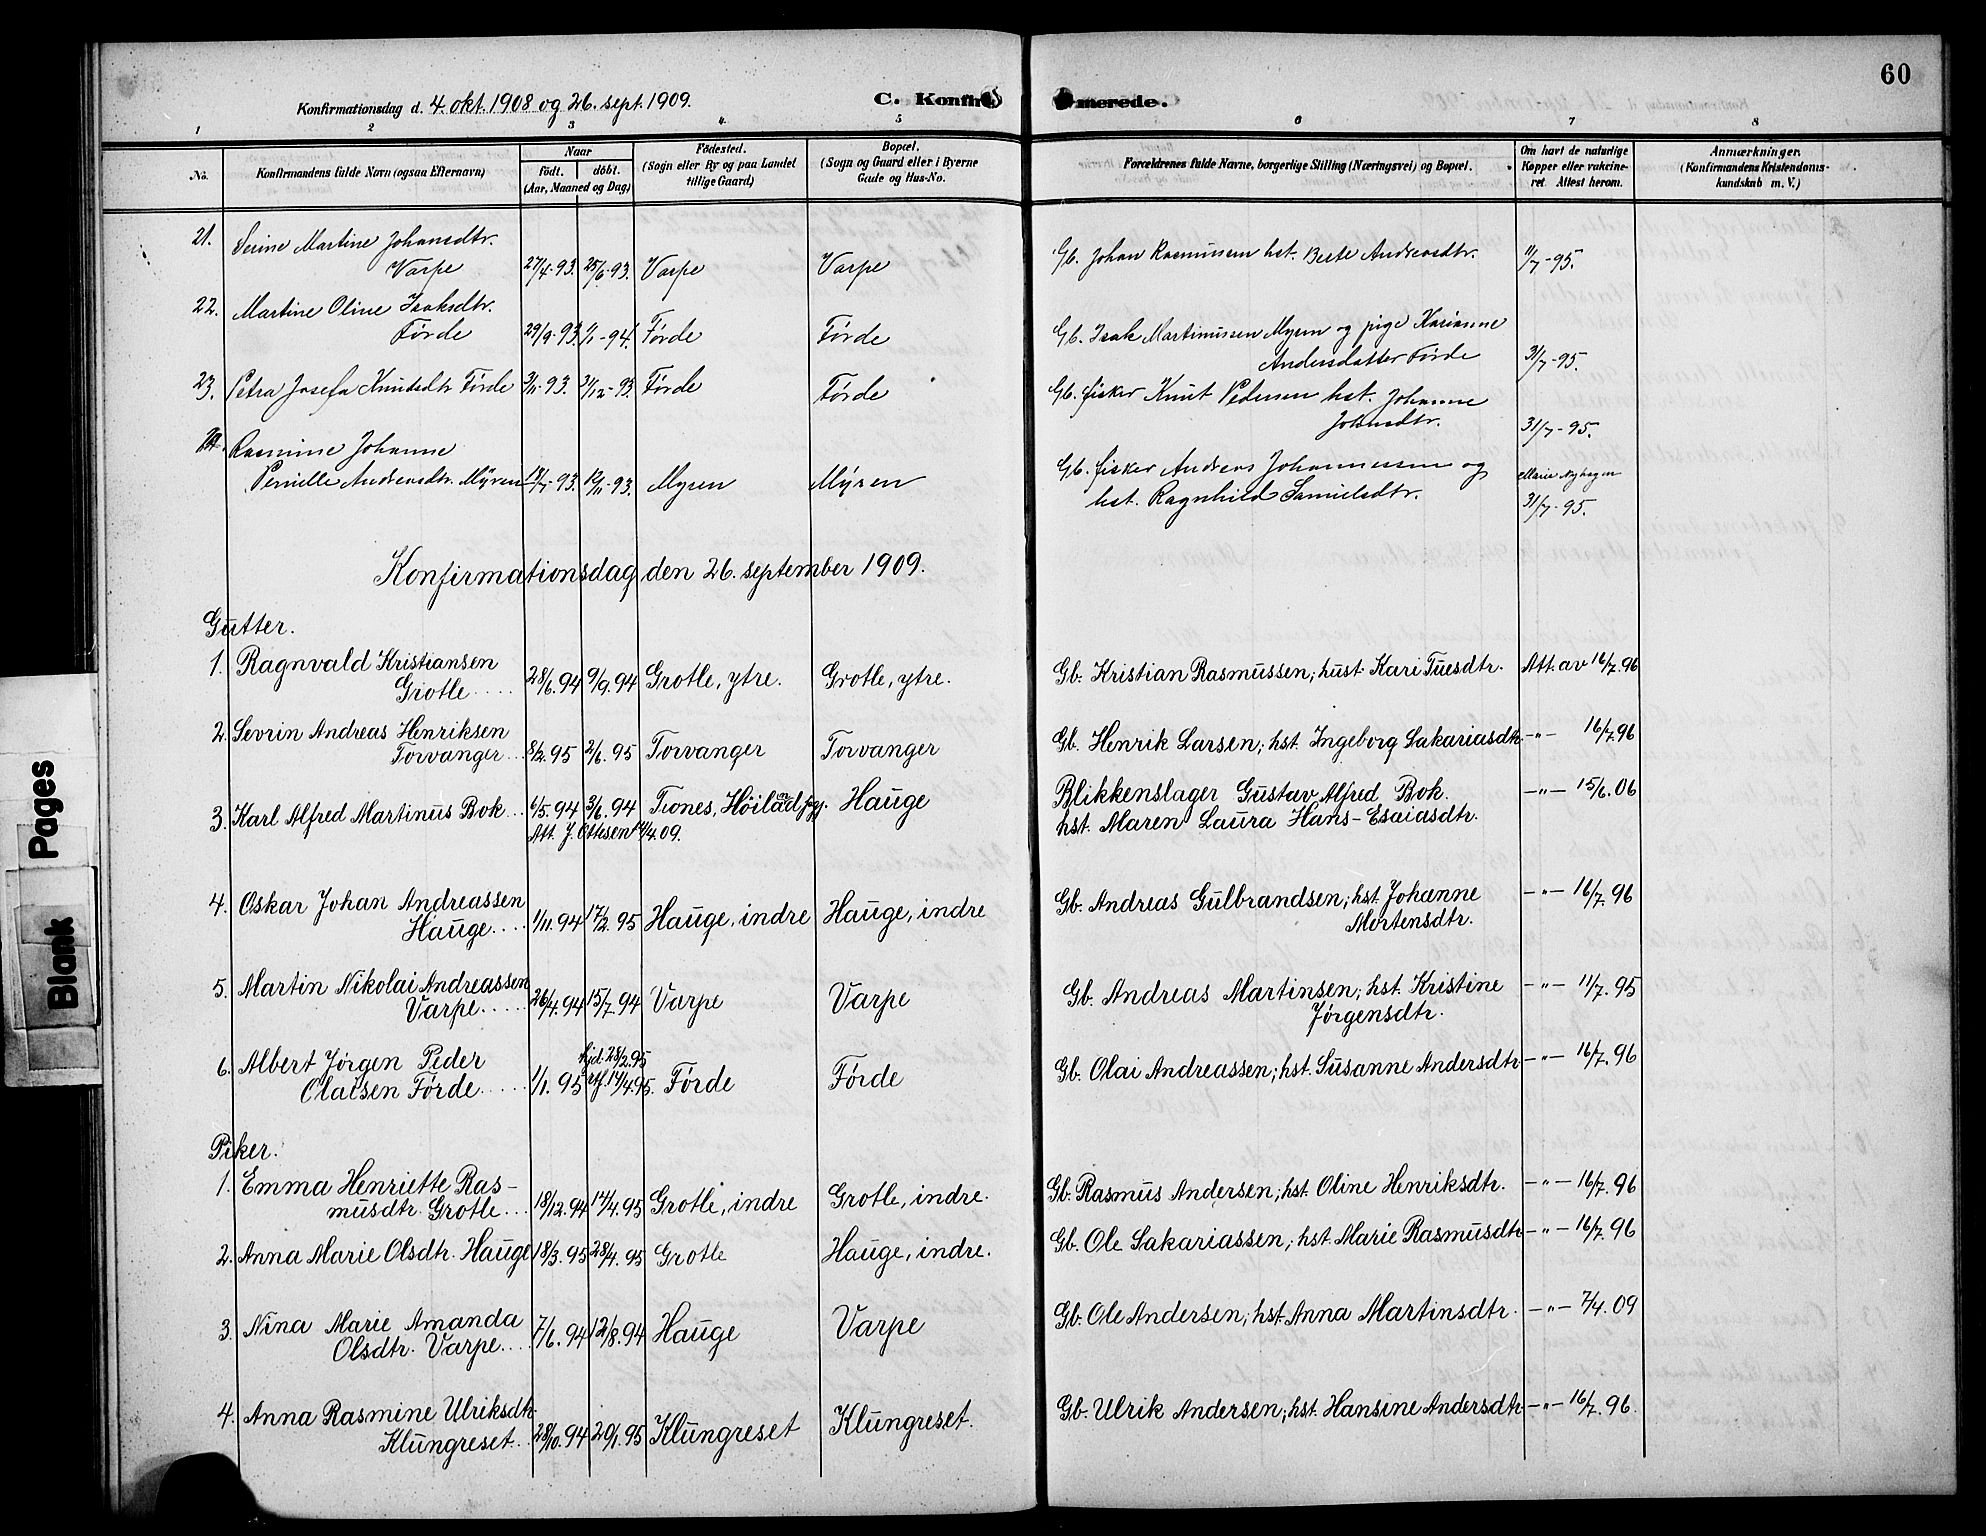 60
Konfirmationsdag d. 4. okt. 1908 og 26. sept. 1909. C. Konfir merede.
1 2 3 4 5 6 7 8
No.
Konfirmandens fulde Navn (ogsaa Efternavn)
Naar
født. døbt.
(Aar, Maaned og Dag)
Fødested.
(Sogn eller By og paa Landet
tillige Gaard)
Bopæl.
(Sogn og Gaard eller i Byerne
Gade og Hus-No.
Forældrenes fulde Navne, borgerlige Stilling (Næringsvei) og Bopæl.
Om havt de naturlige
Kopper eller vakcine-
ret. Attest herom.
Anmærkninger.
(Konfirmandens Kristendoms-
kundskab m. V.)
21. Serine Martine Johansdtr.
Varpe 27/4-93. 25/6-93. Varpe Varpe Gb. Johan Rasmussen hst. Beate Andreasdtr. 11/7-95.
22. Martine Oline Isaksdtr.
Førde 29/9-93. 1/1-94. Førde Førde Gb. Isak Martinussen Myren og pige Karianne
Andersdatter Førde 31/7-95.
23. Petra Josefa Knutsdtr Førde 3/11-93. 31/12-93. Førde Førde Gb. fisker Knut Pedersen hst. Johanne
Johansdtr. 31/7-95.
24. Rasmine Johanne
Pernille Andreasdtr. Myren 93. 19/11-93. Myren Myren Gb. fisker Andreas Johannessen og
hst. Ragnhild Samuelsdtr. Marie Nyhagen
31/7-95.
Konfirmationsdag den 26. september 1909.
Gutter.
1. Ragnvald Kristiansen
Grotle.... 28/6.94 9/9.94 Grotle, ytre. Grotle, ytre. Gb. Kristian Rasmussen; hust. Kari Tuesdtr. Att. av 16/7.96
2. Sevrin Andreas Henriksen
Torvanger... 8/2.95 2/6.95 Torvanger Torvanger Gb. Henrik Larsen; hst. Ingeborg Sakariasdtr. -"- 16/7.96
3. Karl Alfred Martinus Bok... 6/5.94 3/6.94 Trones, Høiland pgj. Hauge Blikkenslager Gustav Alfred Bok. -"- 15/6.06
Att. J. Ottesen 14/4.09. hst. Maren Laura Hans-Esaiasdtr.
4. Oskar Johan Andreassen
Hauge.... 1/11.94 17/2.95 Hauge, indre Hauge, indre Gb. Andreas Gulbrandsen; hst. Johanne
Mortensdtr. -"- 16/7.96
5. Martin Nikolai Andreassen
Varpe..... 26/4.94 15/7.94 Varpe Varpe Gb. Andreas Martinsen; hst. Kristine
Jørgensdtr. -"- 11/7.95
6. Albert Jørgen Peder
Olaisen Førde..... 1/1.95 hjd. 28/2.95
stf. 14/4.95. Førde Førde Gb. Olai Andreassen; hst. Susanne Andersdtr -"- 16/7.96
Piker.
1. Emma Henriette Ras-
musdtr. Grotle... 18/12.94 14/4.95 Grotle, indre Grotle, indre. Gb. Rasmus Andersen; hst. Oline Henriksdtr. -"- 16/7.96
2. Anna Marie Olsdtr. Hauge 18/3.95 28/4.95 Grotle Hauge, indre. Gb. Ole Sakariassen; hst. Marie Rasmusdtr -"- 16/7.96
3. Nina Marie Amanda
Olsdtr. Varpe.... 7/6.94 12/8.94 Hauge Varpe Gb. Ole Andersen; hst. Anna Martinsdtr. -"- 7/4.09
4. Anna Rasmine Ulriksdtr.
Klungreset.. 28/10.94 20/1.95 Klungreset Klungreset. Gb. Ulrik Andersen; hst. Hansine Andersdtr -"- 16/7.96.
Blank Pages